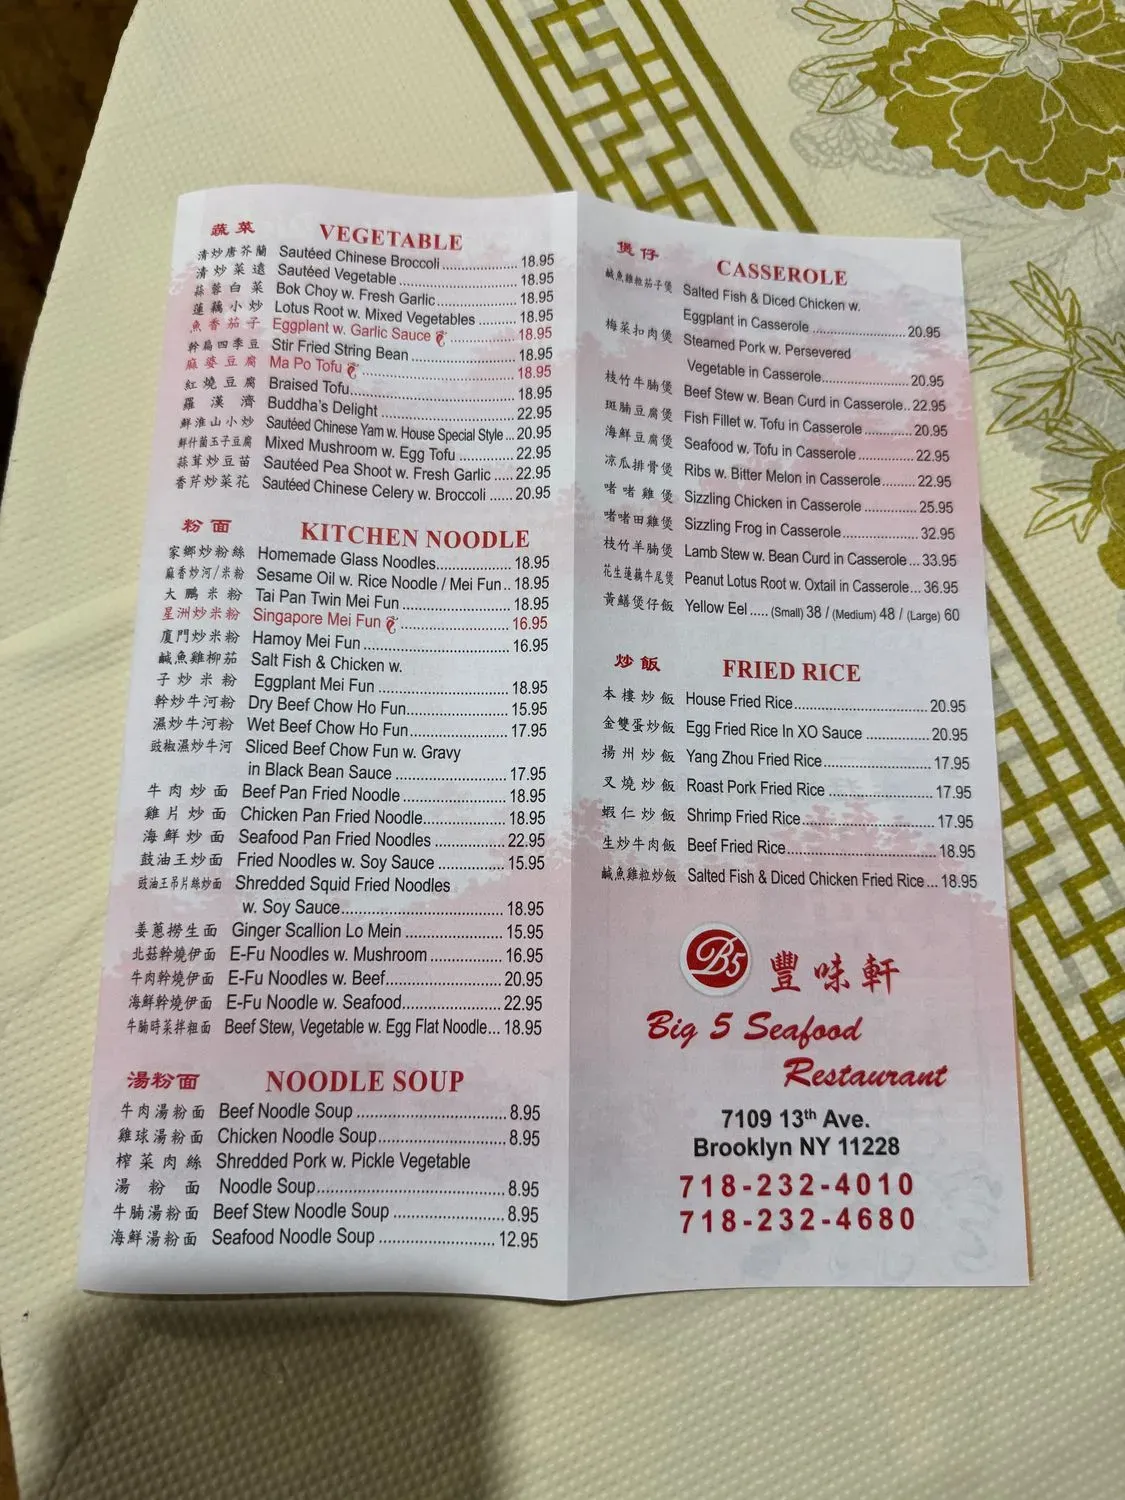 蔬菜 VEGETABLE
清炒唐芥蘭 Sautéed Chinese Broccoli 18.95
清炒菜遠 Sautéed Vegetable 18.95
蒜蓉白菜 Bok Choy w. Fresh Garlic 18.95
蓮藕小炒 Lotus Root w. Mixed Vegetables 18.95
魚香茄子 Eggplant w. Garlic Sauce 18.95
幹扁四季豆 Stir Fried String Bean 18.95
麻婆豆腐 Ma Po Tofu 18.95
紅燒豆腐 Braised Tofu 18.95
羅漢濟 Buddha's Delight 22.95
鮮淮山小炒 Sautéed Chinese Yam w. House Special Style 20.95
鮮什菌玉子豆腐 Mixed Mushroom w. Egg Tofu 22.95
蒜茸炒豆苗 Sautéed Pea Shoot w. Fresh Garlic 22.95
香芹炒菜花 Sautéed Chinese Celery w. Broccoli 20.95
粉面 KITCHEN NOODLE
家鄉炒粉絲 Homemade Glass Noodles 18.95
麻香炒河/米粉 Sesame Oil w. Rice Noodle / Mei Fun 18.95
大鵬米粉 Tai Pan Twin Mei Fun 18.95
星洲炒米粉 Singapore Mei Fun 16.95
廈門炒米粉 Hamoy Mei Fun 16.95
鹹魚雞柳茄 Salt Fish & Chicken w.
子炒米粉 Eggplant Mei Fun 18.95
幹炒牛河粉 Dry Beef Chow Ho Fun 15.95
濕炒牛河粉 Wet Beef Chow Ho Fun 17.95
豉椒濕炒牛河 Sliced Beef Chow Fun w. Gravy
in Black Bean Sauce 17.95
牛肉炒面 Beef Pan Fried Noodle 18.95
雞片炒面 Chicken Pan Fried Noodle 18.95
海鮮炒面 Seafood Pan Fried Noodles 22.95
鼓油王炒面 Fried Noodles w. Soy Sauce 15.95
豉油王吊片絲炒面 Shredded Squid Fried Noodles
w. Soy Sauce 18.95
姜蔥撈生面 Ginger Scallion Lo Mein 15.95
北菇幹燒伊面 E-Fu Noodles w. Mushroom 16.95
牛肉幹燒伊面 E-Fu Noodles w. Beef 20.95
海鮮幹燒伊面 E-Fu Noodle w. Seafood 22.95
牛腩時菜拌粗面 Beef Stew, Vegetable w. Egg Flat Noodle 18.95
湯粉面 NOODLE SOUP
牛肉湯粉面 Beef Noodle Soup 8.95
雞球湯粉面 Chicken Noodle Soup 8.95
榨菜肉絲 Shredded Pork w. Pickle Vegetable
湯粉面 Noodle Soup 8.95
牛腩湯粉面 Beef Stew Noodle Soup 8.95
海鮮湯粉面 Seafood Noodle Soup 12.95
煲仔 CASSEROLE
鹹魚雞粒茄子煲 Salted Fish & Diced Chicken w.
Eggplant in Casserole 20.95
梅菜扣肉煲 Steamed Pork w. Persevered
Vegetable in Casserole 20.95
枝竹牛腩煲 Beef Stew w. Bean Curd in Casserole 22.95
斑腩豆腐煲 Fish Fillet w. Tofu in Casserole 20.95
海鮮豆腐煲 Seafood w. Tofu in Casserole 22.95
涼瓜排骨煲 Ribs w. Bitter Melon in Casserole 22.95
啫啫雞煲 Sizzling Chicken in Casserole 25.95
啫啫田雞煲 Sizzling Frog in Casserole 32.95
枝竹羊腩煲 Lamb Stew w. Bean Curd in Casserole 33.95
花生蓮藕牛尾煲 Peanut Lotus Root w. Oxtail in Casserole 36.95
黃鱔煲仔飯 Yellow Eel ..... (Small) 38 / (Medium) 48 / (Large) 60
炒飯 FRIED RICE
本樓炒飯 House Fried Rice 20.95
金雙蛋炒飯 Egg Fried Rice In XO Sauce 20.95
揚州炒飯 Yang Zhou Fried Rice 17.95
叉燒炒飯 Roast Pork Fried Rice 17.95
蝦仁炒飯 Shrimp Fried Rice 17.95
生炒牛肉飯 Beef Fried Rice 18.95
鹹魚雞粒炒飯 Salted Fish & Diced Chicken Fried Rice 18.95
B5 豐味軒
Big 5 Seafood
Restaurant
7109 13th Ave.
Brooklyn NY 11228
718-232-4010
718-232-4680